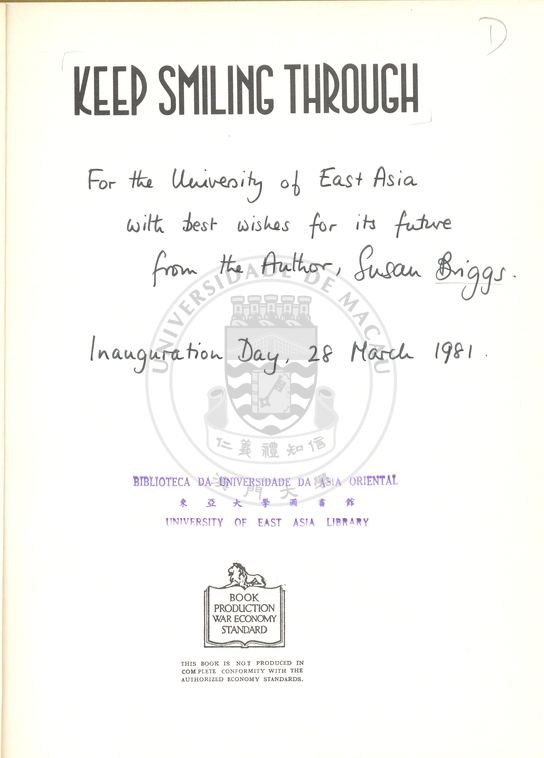 D
KEEP SMILING THROUGH
For the University of East Asia
with best wishes for its future
from the Author, Susan Briggs.
Inauguration Day, 28 March 1981.
UNIVERSIDADE DE MACAU
仁義禮知信
澳門大學
BIBLIOTECA DA UNIVERSIDADE DA ÁSIA ORIENTAL
東亞大學圖書館
UNIVERSITY OF EAST ASIA LIBRARY
BOOK
PRODUCTION
WAR ECONOMY
STANDARD
THIS BOOK IS NOT PRODUCED IN
COMPLETE CONFORMITY WITH THE
AUTHORIZED ECONOMY STANDARDS.